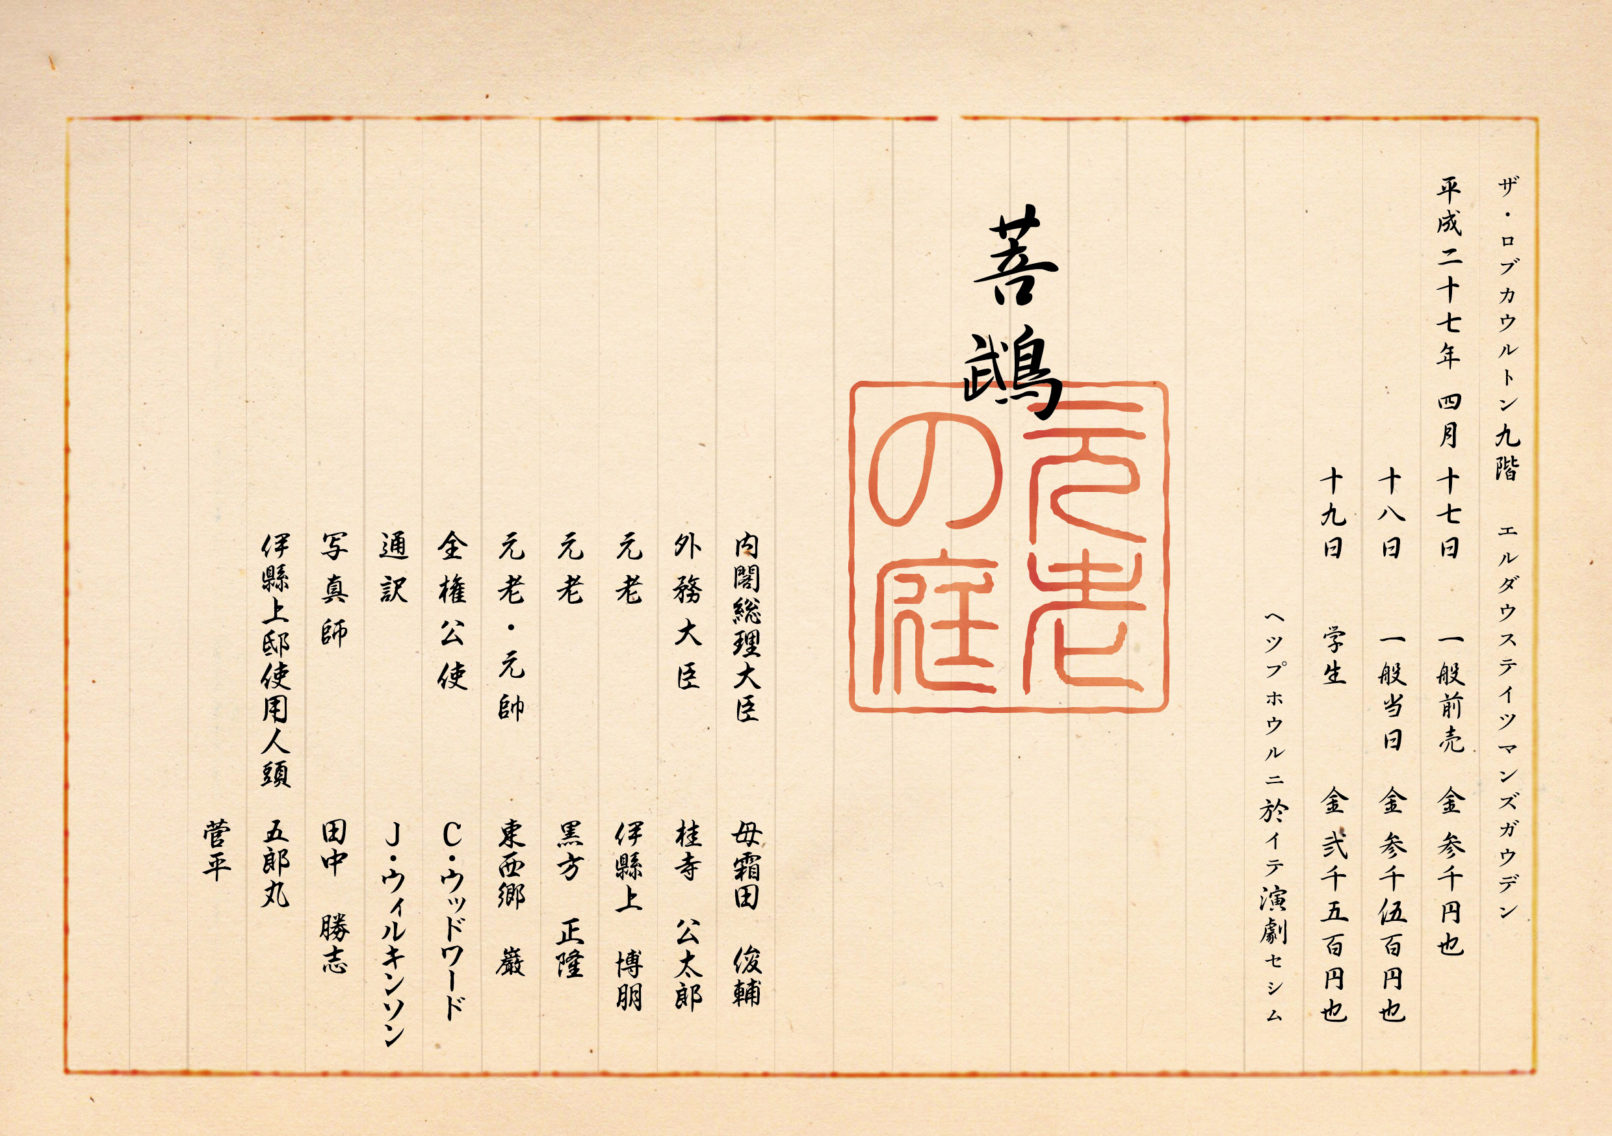 ザ・ロブカウルトン九階　エルダウステイツマンズガウデン
平成二十七年　四月　十七日　一般前売　金　参千円也
十八日　一般当日　金　参千伍百円也
十九日　学生　金　弐千五百円也
ヘツプホウルニ於イテ演劇セシム
菩鵡
元老
の庭
内閣総理大臣　母霜田　俊輔
外務大臣　桂寺　公太郎
元老　伊縣上　博朋
元老　黒方　正隆
元老・元帥　東西郷　巌
全権公使　C・ウッドワード
通訳　J・ウィルキンソン
写真師　田中　勝志
伊縣上邸使用人頭　五郎丸
菅平